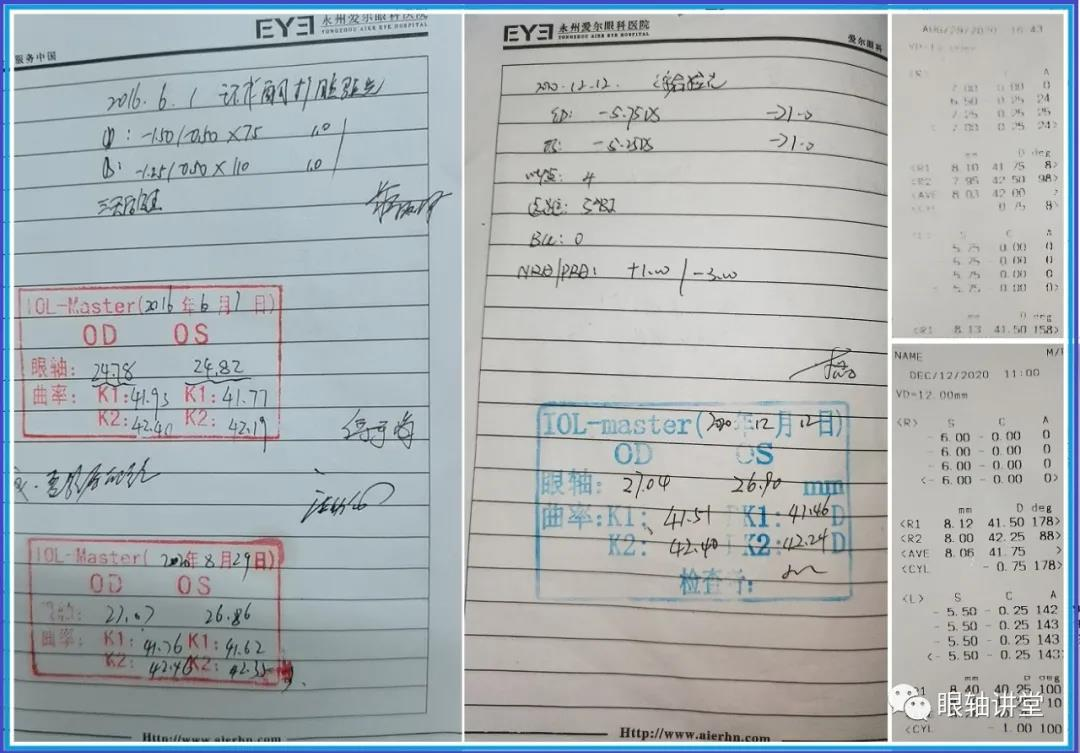 EYE 永州爱尔眼科医院
YONGZHOU AIER EYE HOSPITAL
服务中国
2016.6.1
: -1.50/-0.50×75 1.0
: -1.25/-0.50×110 1.0
IOL-Master(2016年6月1日)
OD OS
眼轴: 24.78 24.82
曲率: K1:41.93 K1:41.77
K2:42.40 K2:42.19
IOL-Master(2020年8月29日)
OD OS
27.07 26.86
曲率: K1:41.76 K1:41.62
K2:42.46 K2:
Http://www.aierhn.com
EYE 永州爱尔眼科医院
YONGZHOU AIER EYE HOSPITAL
爱尔眼科
2020.12.12. 综合验光
OD: -5.75DS →1.0
OS: -5.25DS →1.0
: 4
BCC: 0
NRA/PRA: +1.00/-3.00
IOL-master(2020年12月12日)
OD OS
眼轴: 27.04 26.90 mm
曲率:K1: 41.51 K1:41.46 D
K2: 42.40 K2:42.24 D
检查者:
Http://www.aierhn.com
AUG/29/2020 16:43
<R> S C A
- 7.00 - 0.00 0
- 6.50 - 0.25 24
- 7.25 - 0.25 25
< 7.00 - 0.25 24>
mm D deg
<R1 8.10 41.75 8>
<R2 7.95 42.50 98>
<AVE 8.03 42.00 >
<CYL 0.75 8>
<L> S C A
5.75 0.00 0
5.75 0.00 0
5.75 0.00 0
- 5.75 0.00 0>
mm D deg
<R1 8.13 41.50 158>
NAME M/F
DEC/12/2020 11:00
VD=12.00mm
<R> S C A
- 6.00 - 0.00 0
- 6.00 - 0.00 0
- 6.00 - 0.00 0
<- 6.00 - 0.00 0>
mm D deg
<R1 8.12 41.50 178>
<R2 8.00 42.25 88>
<AVE 8.06 41.75 >
<CYL - 0.75 178>
<L> S C A
- 5.50 - 0.25 142
- 5.50 - 0.25 143
- 5.50 - 0.25 143
<- 5.50 - 0.25 143>
mm D deg
<R1 8.40 40.25 100
<CYL - 1.00 100
眼轴讲堂